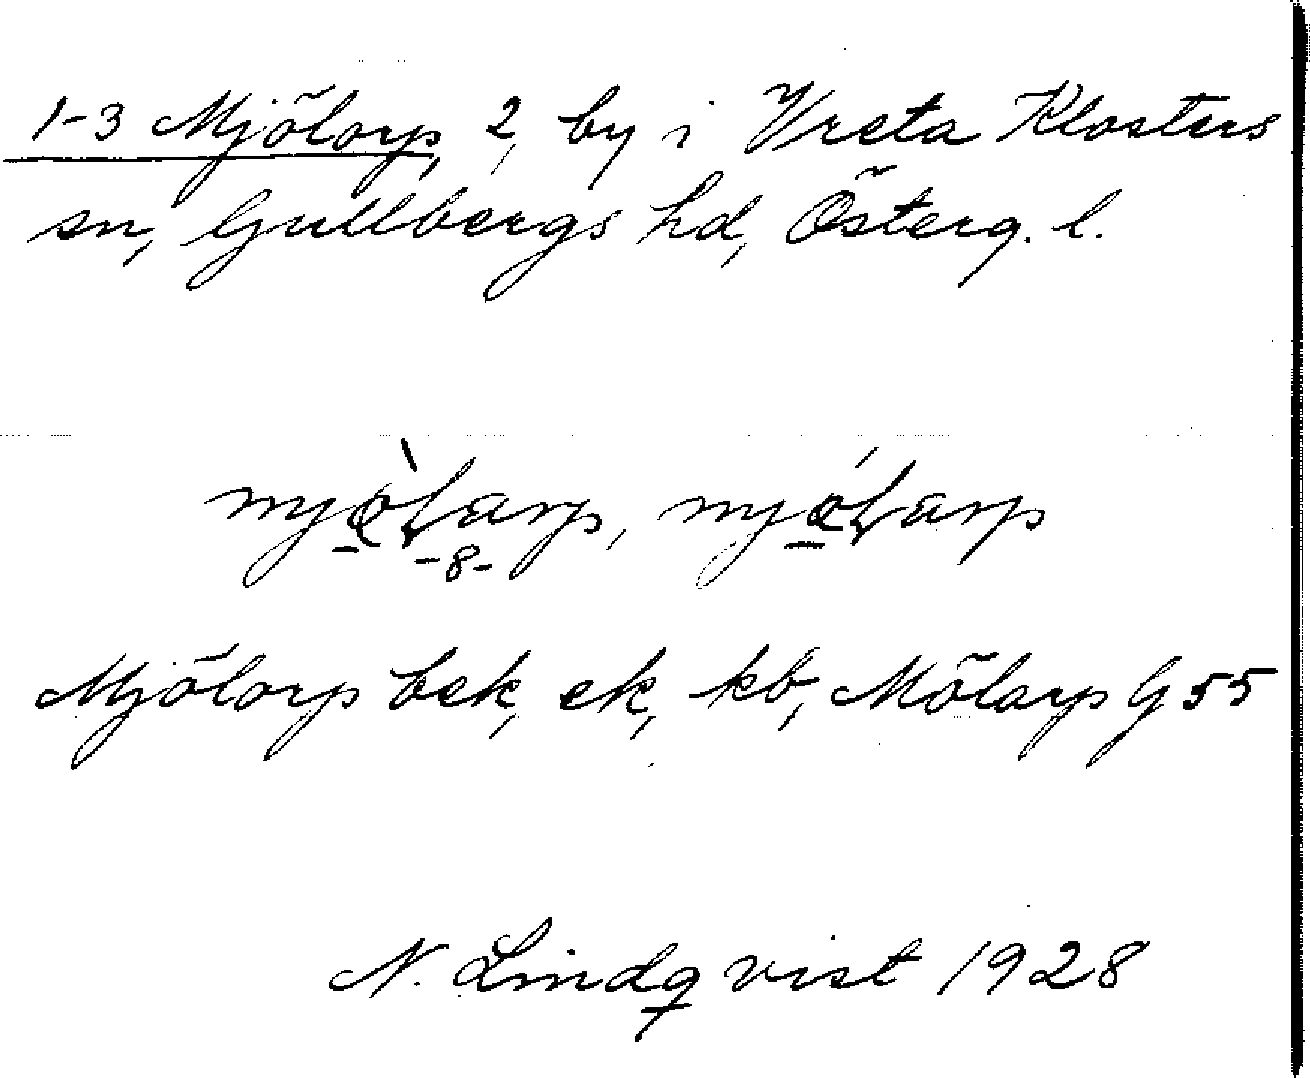 1-3 Mjölorp, 2, by i Vreta Klosters
sn, Gullbergs hd, Österg. l.
Mjölorp bek, ek, kb, Mölarp G 55
N. Lindqvist 1928